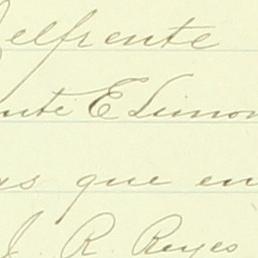 Belfrente
nte E Limon
as que en
J. R. Reyes